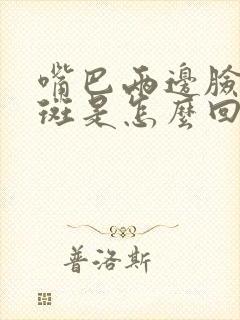 嘴巴兩邊臉
斑是怎麼回
普洛斯